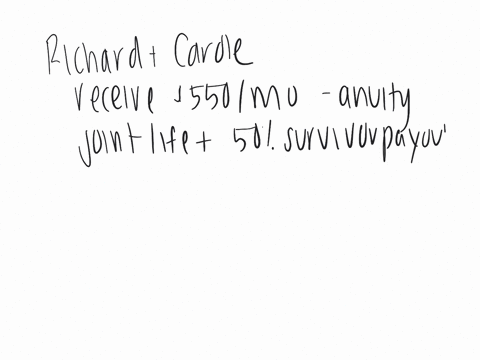 Richard + Carole
receive $550/mo - anuity
joint life + 50% survivor payou